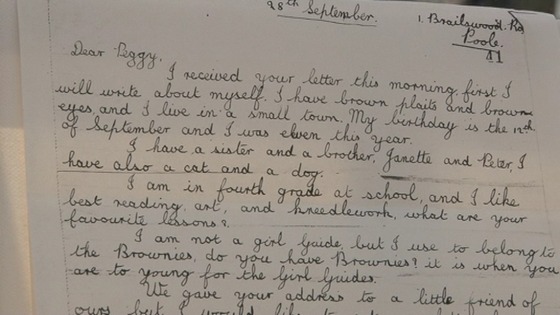 28th September.
1. Brailswood. Rd
Poole.
41
Dear Peggy,
I received your letter this morning, first I
will write about myself. I have brown plaits and brown
eyes, and I live in a small town. My birthday is the 12th.
of September and I was eleven this year.
I have a sister and a brother, Janette and Peter, I
have also a cat and a dog.
I am in fourth grade at school, and I like
best reading, art, and kneedlework, what are your
favourite lessons?
I am not a girl Guide, but I use to belong to
the Brownies, do you have Brownies? it is when you
are to young for the Girl Guides.
We gave your address to a little friend of
ours but I would like to